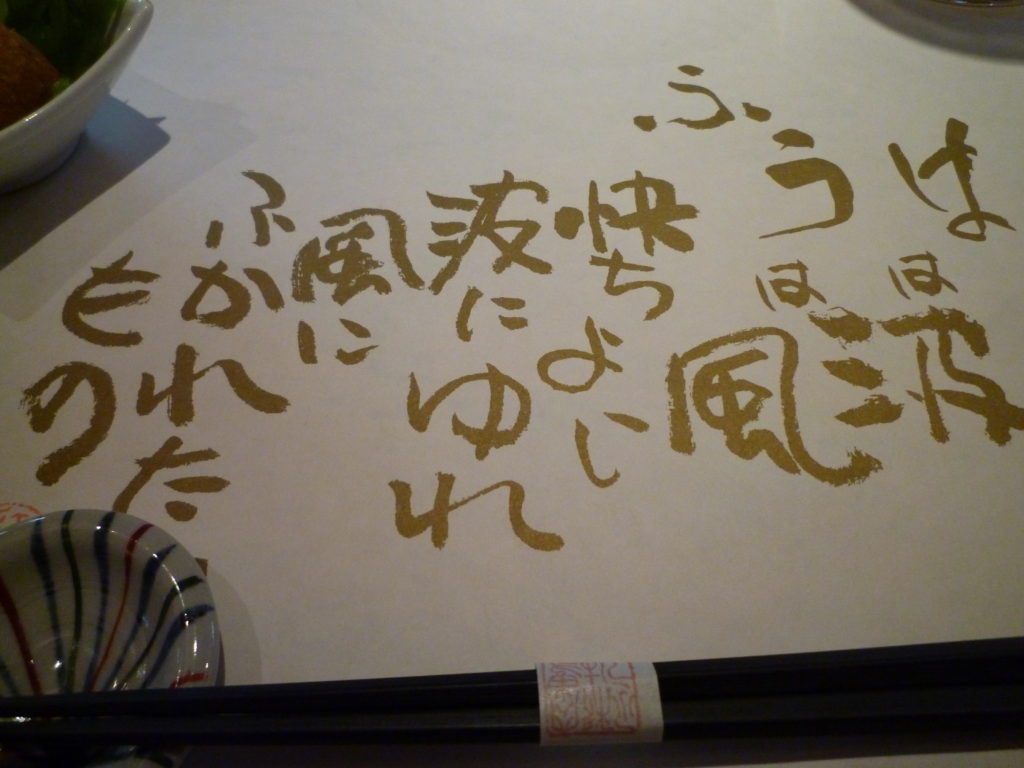 はは波
ふうは風
快ちよい
波にゆれ
風に
ふかれた
もの